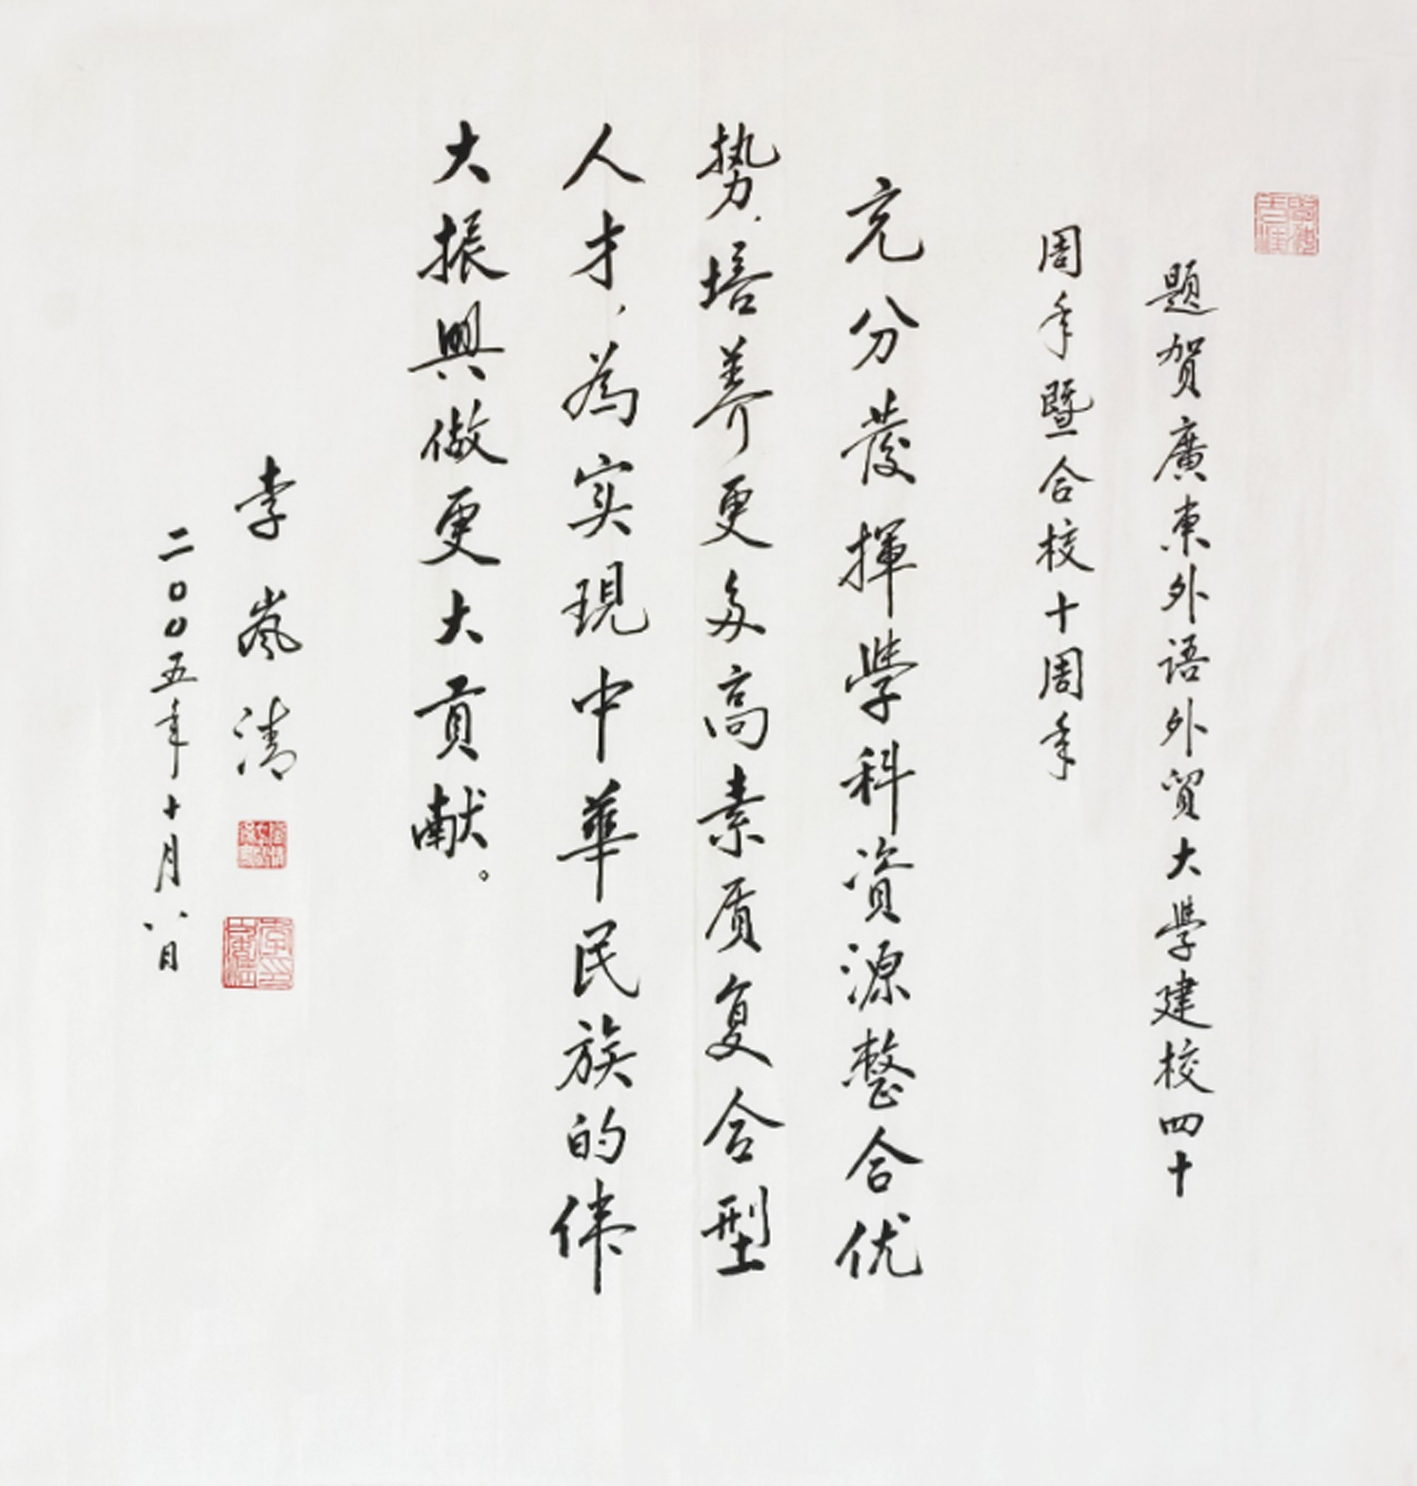 题贺廣東外语外貿大學建校四十
周年暨合校十周年
充分發揮學科資源整合优
势，培养更多高素质复合型
人才，為实現中華民族的伟
大振興做更大貢献。
李岚清
二〇〇五年十月八日